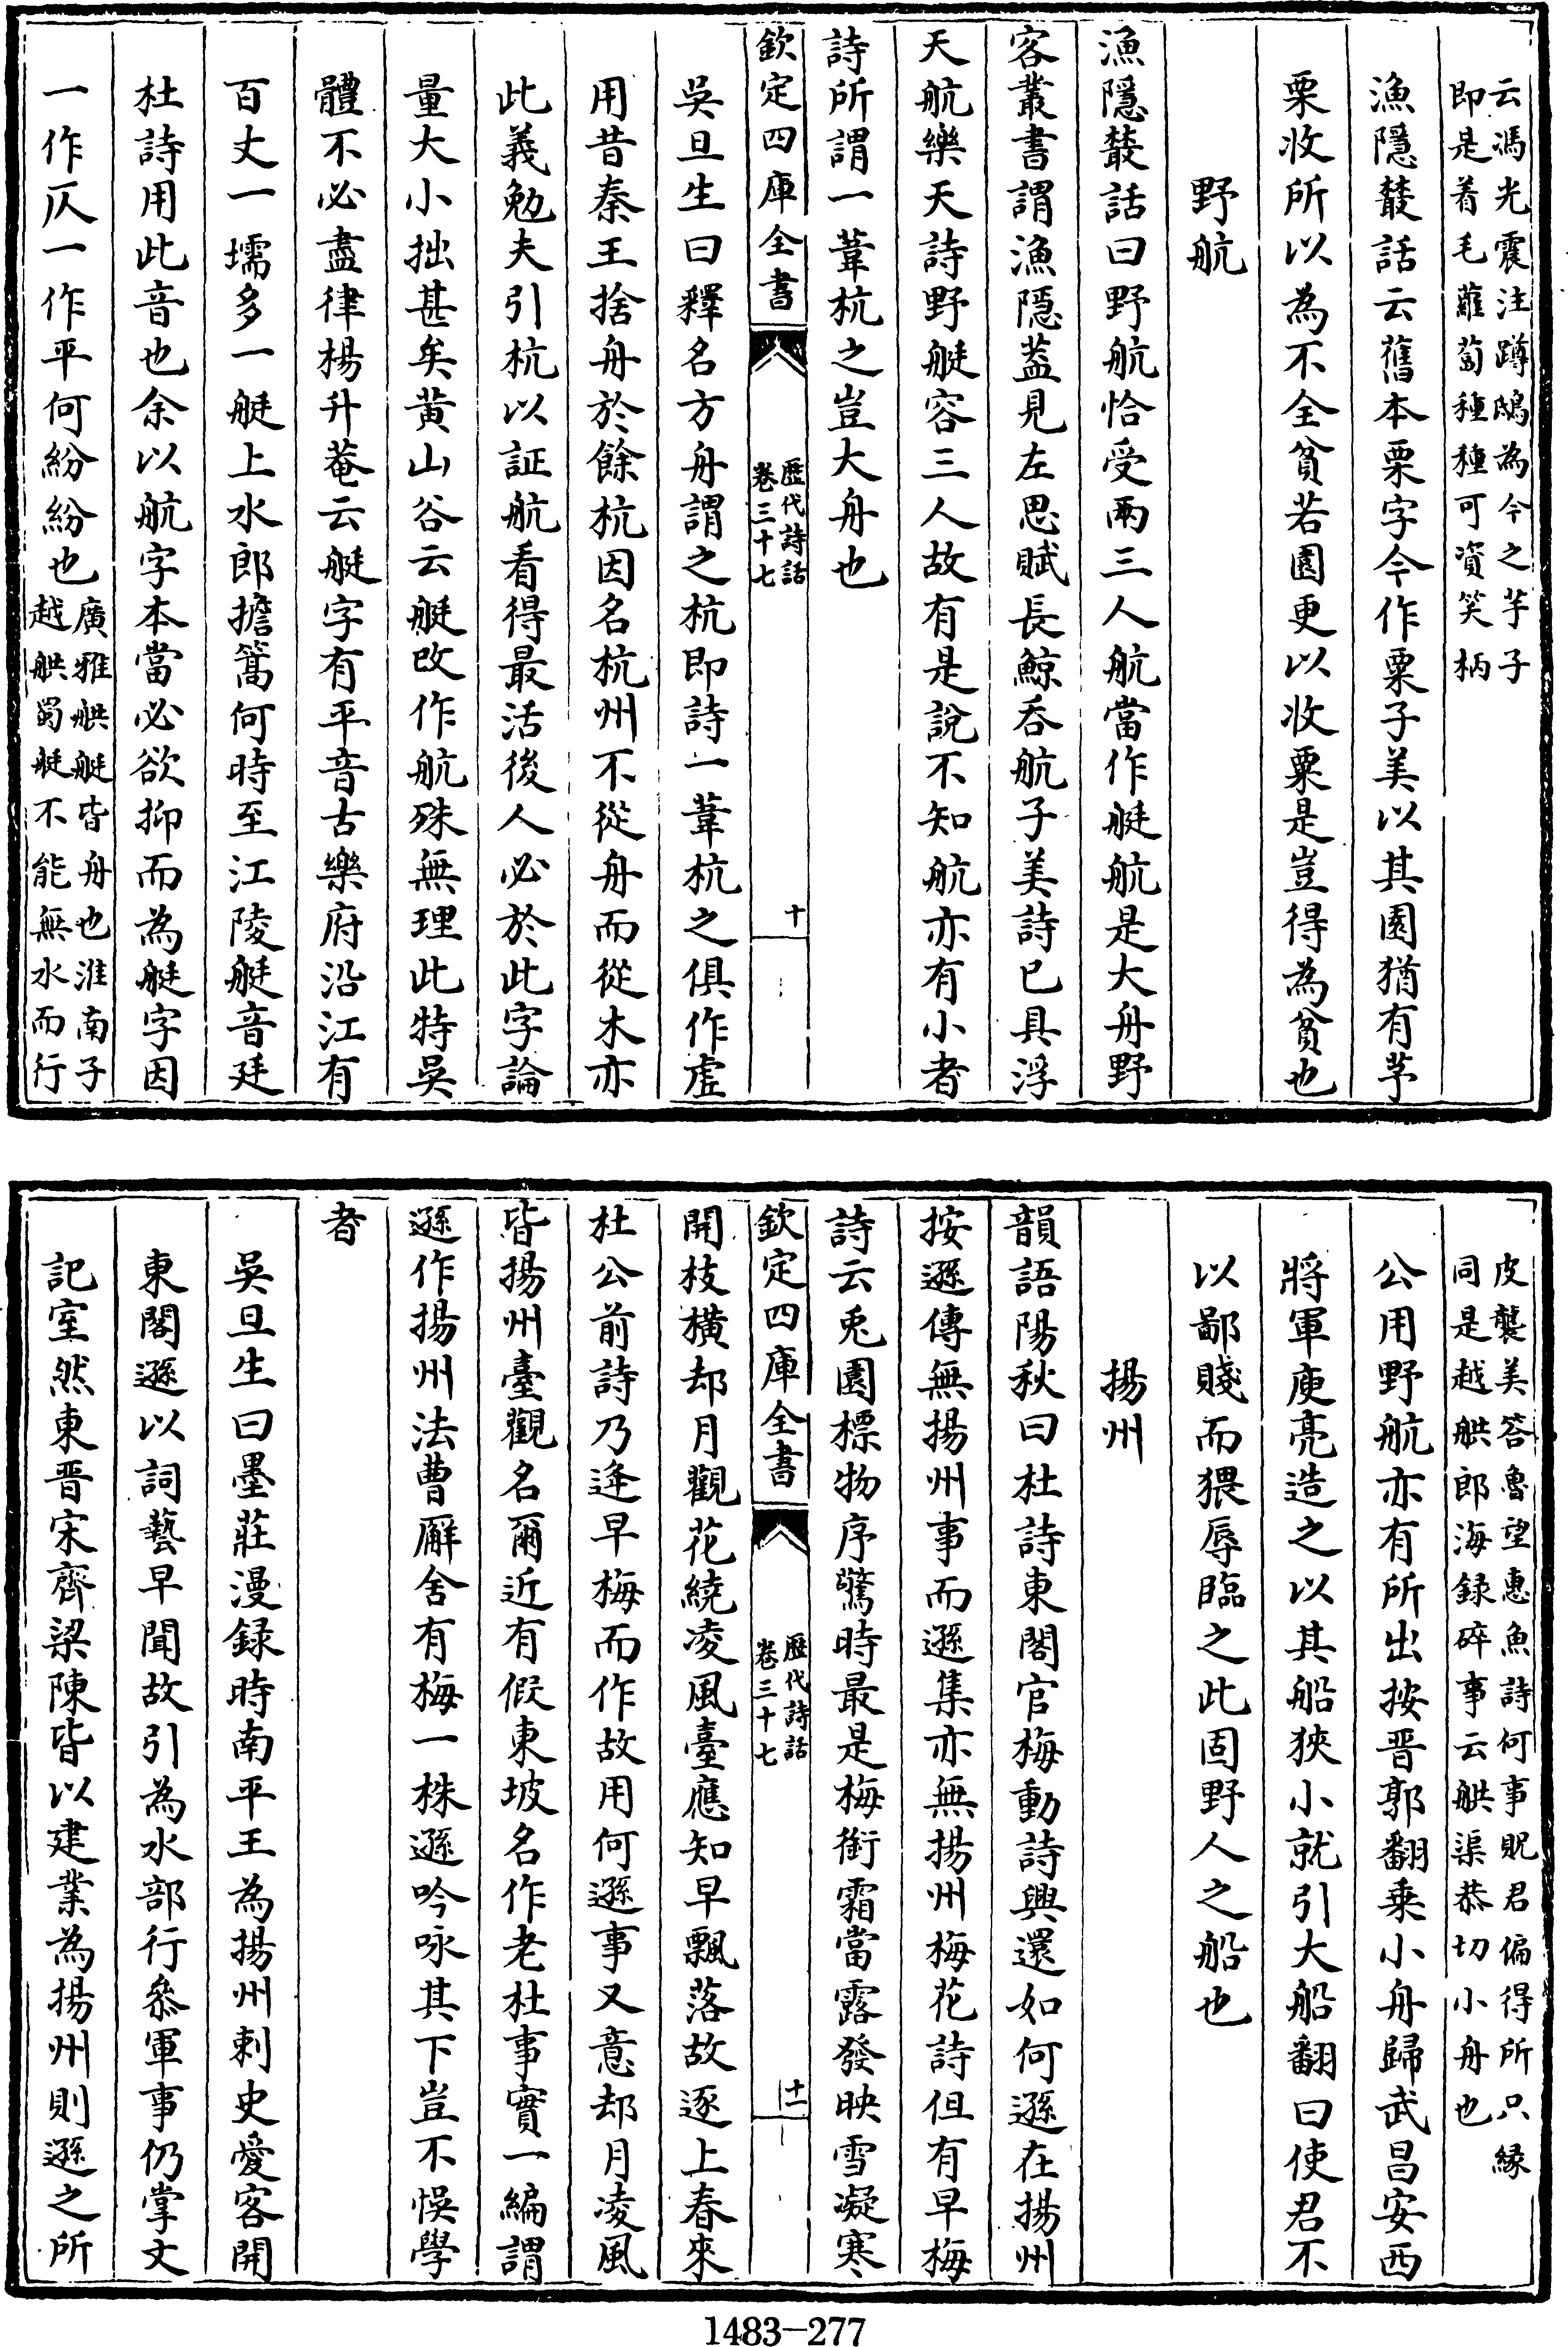 云馮光震注蹲鴟為今之芋子
即是着毛蘿蔔種種可資笑柄
漁隱叢話云舊本栗字今作粟子美以其園猶有芋
栗收所以為不全貧若園更以收粟是豈得為貧也
野航
漁隱叢話曰野航恰受兩三人航當作艇航是大舟野
客叢書謂漁隱葢見左思賦長鯨吞航子美詩已具浮
天航樂天詩野艇容三人故有是說不知航亦有小者
詩所謂一葦杭之豈大舟也
欽定四庫全書
歷代詩話
卷三十七
十
吳旦生曰釋名方舟謂之杭即詩一葦杭之俱作虛
用昔秦王捨舟於餘杭因名杭州不從舟而從木亦
此義勉夫引杭以証航看得最活後人必於此字論
量大小拙甚矣黄山谷云艇改作航殊無理此特吳
體不必盡律楊升菴云艇字有平音古樂府沿江有
百丈一壖多一艇上水郎擔篙何時至江陵艇音廷
杜詩用此音也余以航字本當必欲抑而為艇字因
一作仄一作平何紛紛也
廣雅䑠艇皆舟也淮南子
越䑠蜀艇不能無水而行
皮襲美答魯望惠魚詩何事貺君偏得所只緣
同是越䑠郎海録碎事云䑠渠恭切小舟也
公用野航亦有所出按晋郭翻乘小舟歸武昌安西
將軍庾亮造之以其船狹小就引大船翻曰使君不
以鄙賤而猥辱臨之此固野人之船也
揚州
韻語陽秋曰杜詩東閣官梅動詩興還如何遜在揚州
按遜傳無揚州事而遜集亦無揚州梅花詩但有早梅
詩云兎園標物序驚時最是梅銜霜當露發映雪凝寒
欽定四庫全書
歷代詩話
卷三十七
十一
開枝横却月觀花繞凌風臺應知早飄落故逐上春來
杜公前詩乃逄早梅而作故用何遜事又意却月凌風
皆揚州臺觀名爾近有假東坡名作老杜事實一編謂
遜作揚州法曹廨舍有梅一株遜吟咏其下豈不悞學
者
吳旦生曰墨莊漫録時南平王為揚州刺史愛客開
東閣遜以詞藝早聞故引為水部行叅軍事仍掌文
記室然東晋宋齊梁陳皆以建業為揚州則遜之所
1483—277